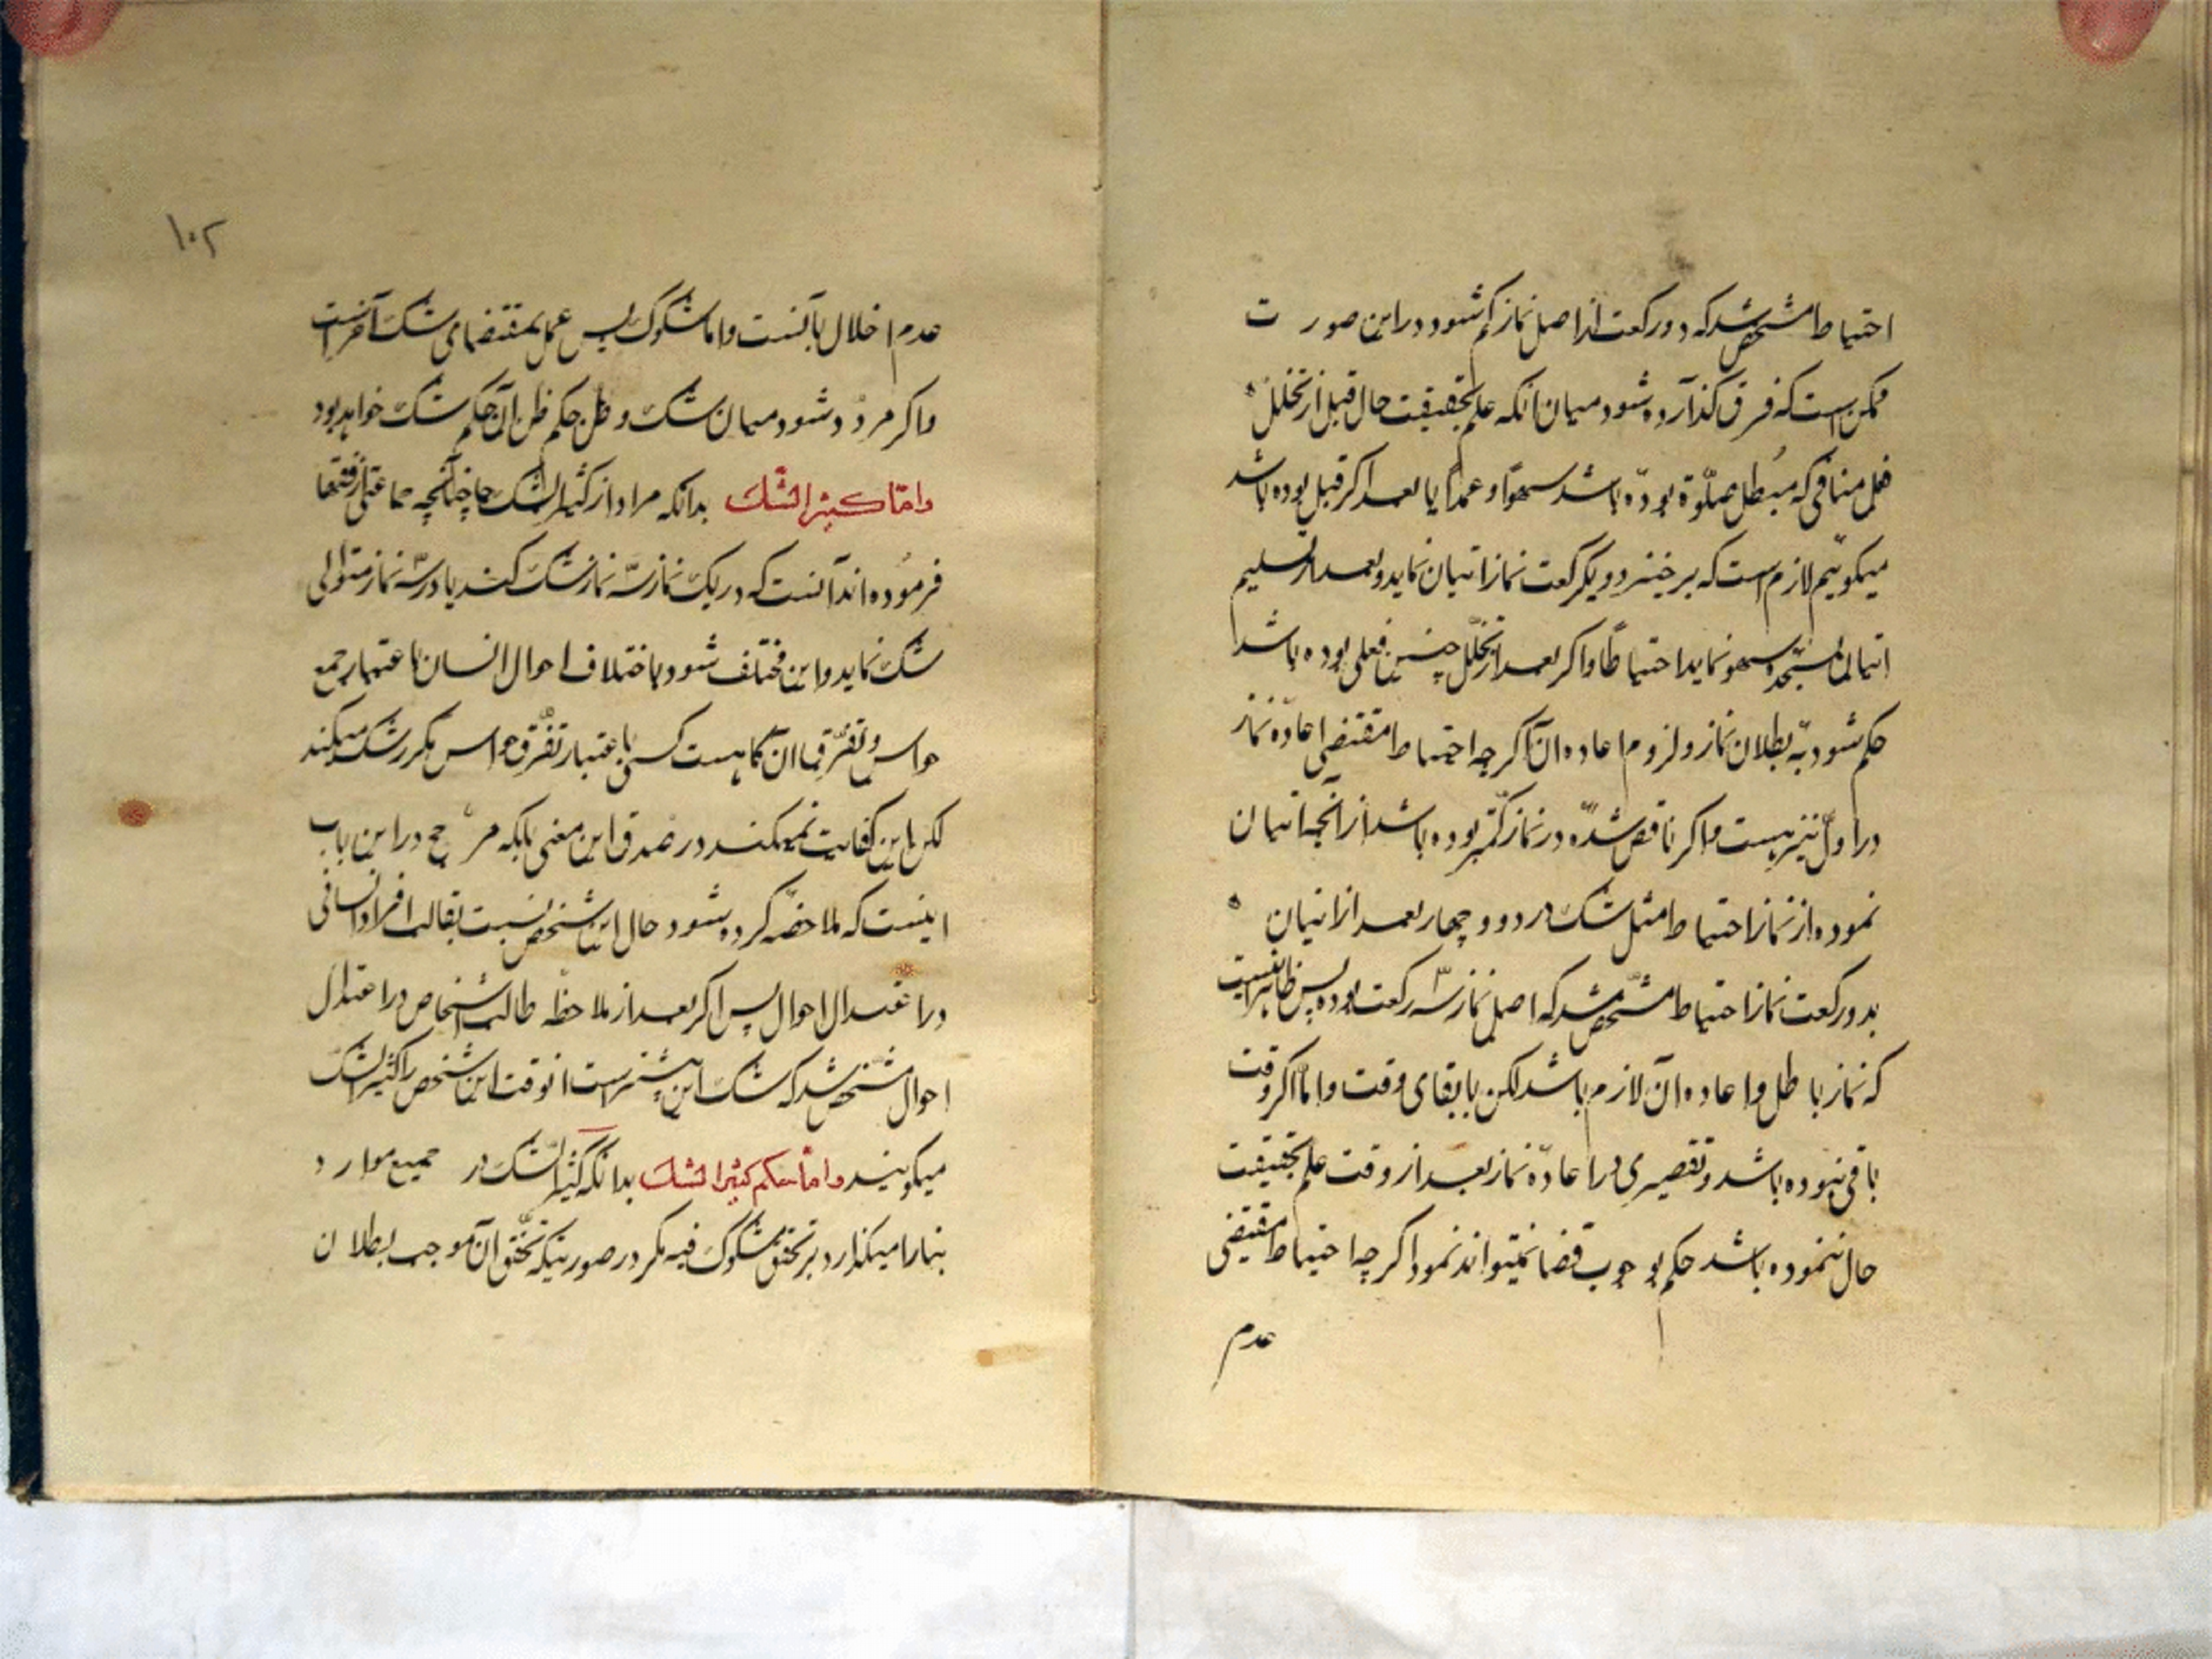 احتیاط مشخص شد که دو رکعت از اصل نماز کم شود در این صورت
ممکن است که فرق گذارده شود میان آنکه علم بحقیقت حال قبل از تخلل
فعل منافی که مبطل صلوة بوده باشد سهوًا و عمدًا یا بعد اگر قبل بوده باشد
میکوئیم لازم است که برخیزد و یکرکعت نماز اتیان نماید و بعد از تسلیم
اتیان بسجده سهو نماید احتیاطًا و اکر بعد از تخلل چنین فعلی بوده باشد
حکم شود به بطلان نماز و لزوم اعاده آن اکر چه احتیاط مقتضی اعاده نماز
در اول نیز هست و اکر ناقص شده در نماز کمتر بوده باشد از آنچه اتیان
نموده از نماز احتیاط مثل شک در دو و چهار بعد از اتیان
بدو رکعت نماز احتیاط مشخص شد که اصل نماز سه رکعت بوده پس ظاهر اینست
که نماز باطل و اعاده آن لازم باشد لکن با بقای وقت و اما اکر وقت
باقی نبوده باشد و تقصیری در اعاده نماز بعد از وقت علم بحقیقت
حال ننموده باشد حکم بوجوب قضا نمیتواند نمود اکر چه احتیاط مقتضی
عدم
۱۰۲
عدم اخلال بآنست و اما شکوک پس عمل بمقتضای شک آخر است
و اکر مردد شود میان شک و ظن حکم ظن آن حکم شک خواهد بود
و امّا کثیر الشک بدانکه مراد از کثیر الشک چنانچه جماعتی از فقها
فرموده اند آنست که در یک نماز سه نماز شک کند یا در سه نماز متوالی
شک نماید و این مختلف شود باختلاف احوال انسان باعتبار جمع
حواس و تفرق آن کما هست کسی باعتبار تفرق حواس مکرر شک میکند
لکن این کفایت نمیکند در صدق این معنی بلکه مرجح در این باب
اینست که ملاحضه کرده شود حال این شخص نسبت بغالب افراد انسانی
در اعتدال احوال پس اکر بعد از ملاحظه غالب اشخاص در اعتدال
احوال مشخص شد که شک این بیشتر است انوقت این شخص را کثیر الشک
میکویند و امّا حکم کثیر الشک بدانکه کثیر الشک در جمیع موارد
بنا را میکذارد بر تحقق مشکوک فیه مکر در صورتیکه تحقق آن موجب بطلان